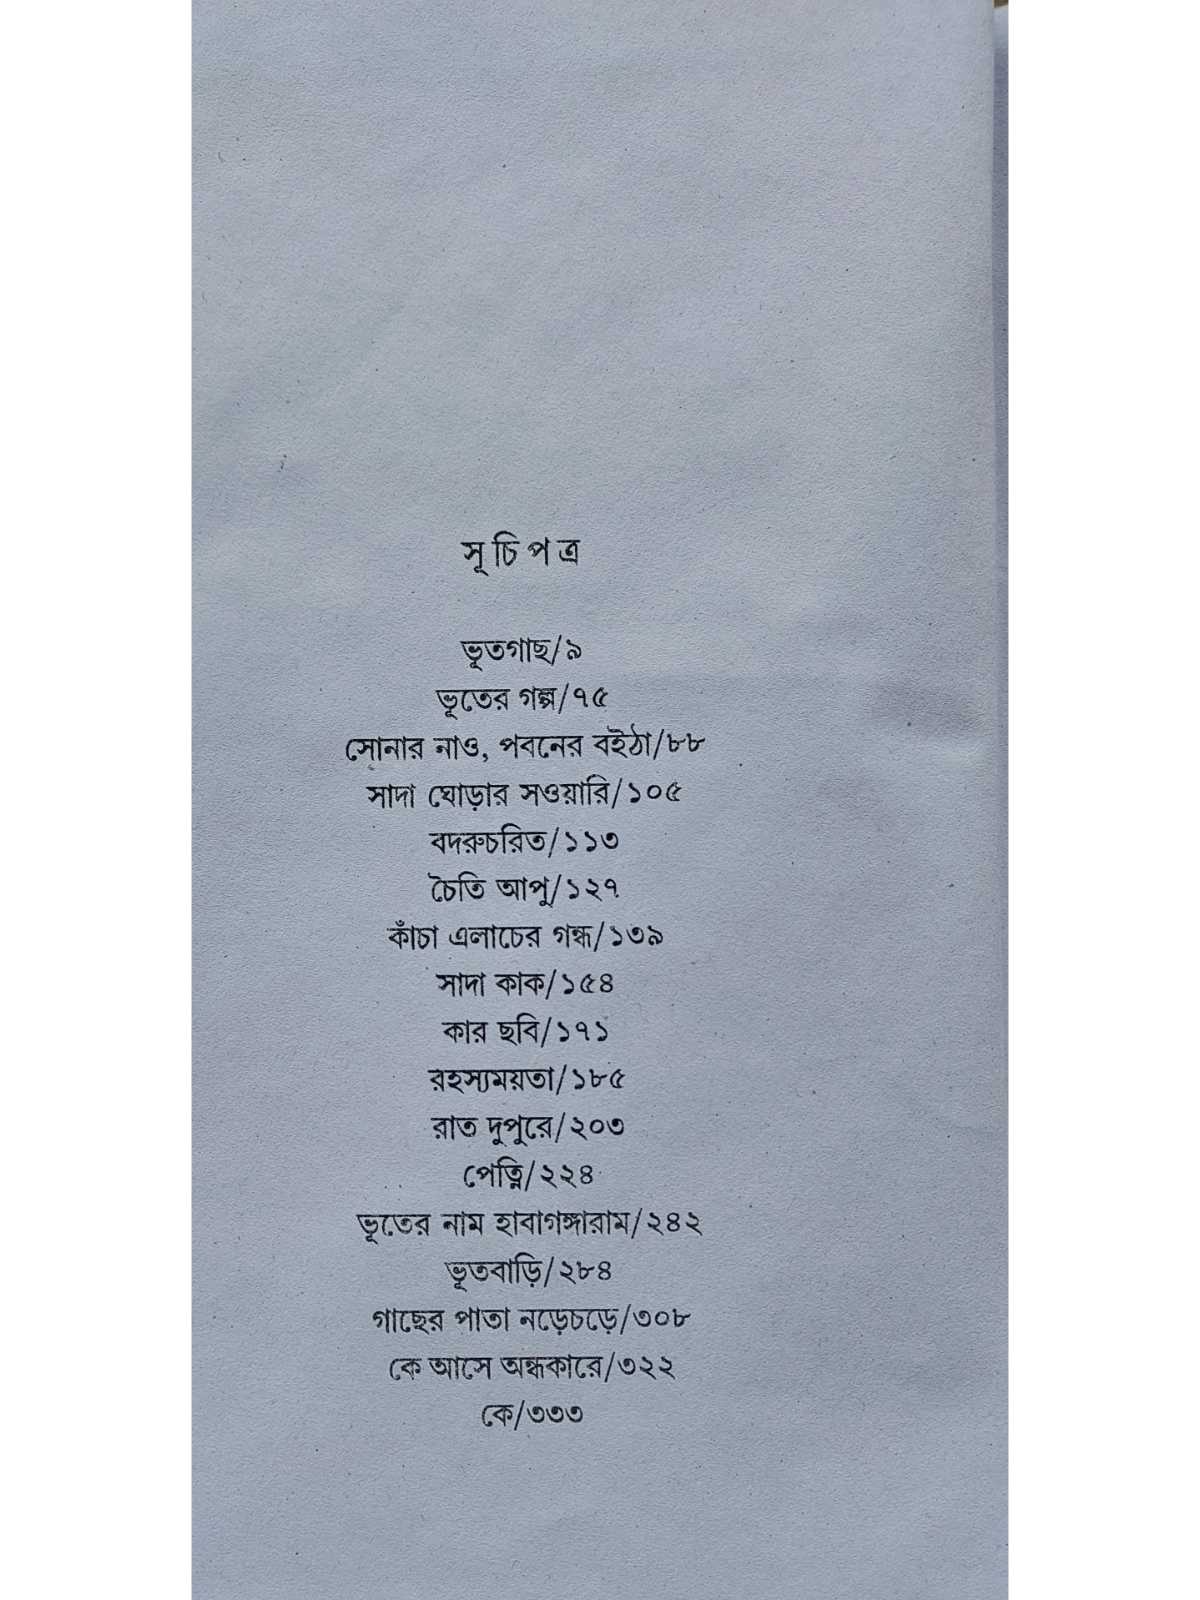 সূচিপত্র
ভূতগাছ/৯
ভূতের গল্প/৭৫
সোনার নাও, পবনের বইঠা/৮৮
সাদা ঘোড়ার সওয়ারি/১০৫
বদরুচরিত/১১৩
চৈতি আপু/১২৭
কাঁচা এলাচের গন্ধ/১৩৯
সাদা কাক/১৫৪
কার ছবি/১৭১
রহস্যময়তা/১৮৫
রাত দুপুরে/২০৩
পেত্নি/২২৪
ভূতের নাম হাবাগঙ্গারাম/২৪২
ভূতবাড়ি/২৮৪
গাছের পাতা নড়েচড়ে/৩০৮
কে আসে অন্ধকারে/৩২২
কে/৩৩৩